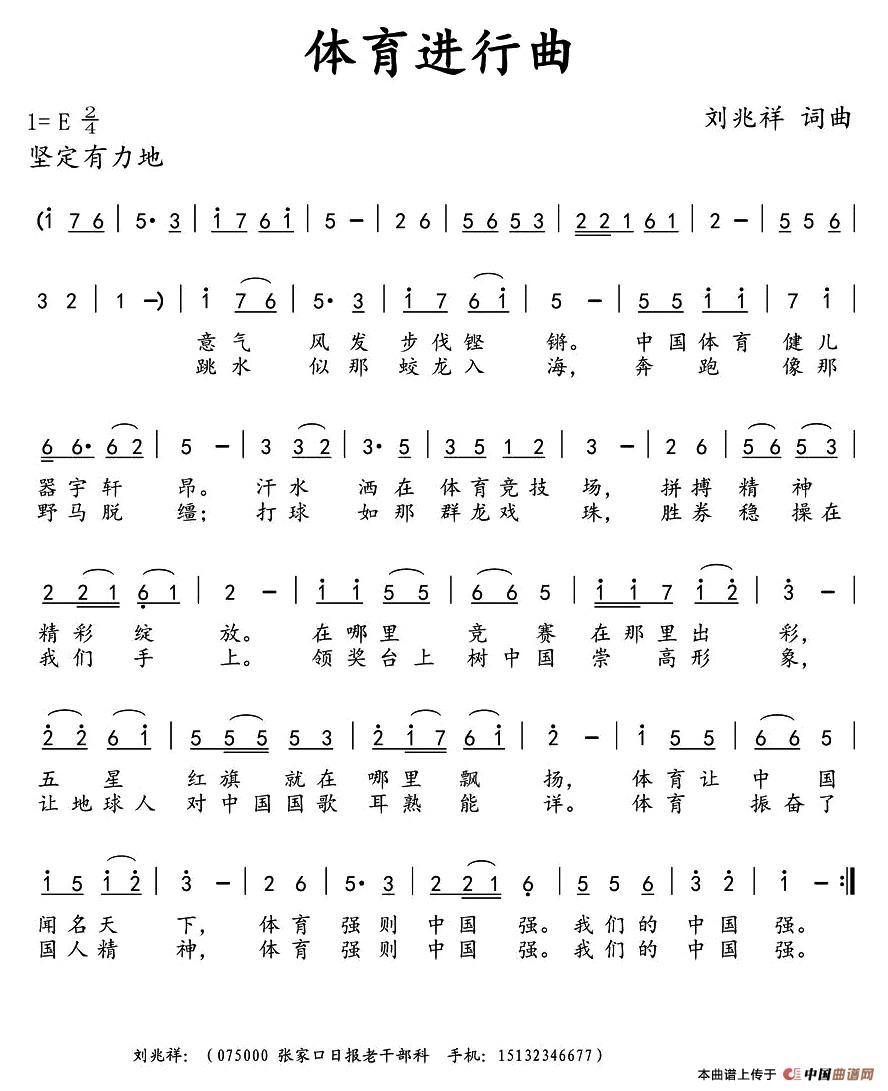 体育进行曲
1= E 2/4
刘兆祥 词曲
坚定有力地
(i 76 | 5· 3 | i7 6i | 5 – | 2 6 | 56 53 | 2216 61 | 2 – | 5 5 6 |
3 2 | 1 –) | i 76 | 5· 3 | i7 6i | 5 – | 55 ii | 7 i |
意气 风发 步伐铿 锵。 中国体育 健儿
跳水 似那 蛟龙入 海, 奔 跑 像那
6 6· 62 | 5 – | 3 32 | 3· 5 | 35 12 | 3 – | 2 6 | 56 53 |
器宇轩 昂。 汗水 洒在 体育竞技 场, 拼搏 精神
野马脱 缰; 打球 如那 群龙戏 珠, 胜券 稳操在
2 21 61 | 2 – | ii 55 | 66 5 | ii7 i2 | 3 – |
精彩 绽 放。 在哪里 竞 赛 在那里出 彩,
我们 手 上。 领奖台上 树中国 崇 高形 象,
22 6i | 5 55 53 | 2 i7 6i | 2 – | i 55 | 66 5 |
五 星 红旗 就在 哪里飘 扬, 体育让 中 国
让地球人 对中国国歌 耳熟 能 详。 体育 振奋了
i5 i2 | 3 – | 2 6 | 5· 3 | 2 21 6 | 5 5 6 | 3 2 | i – :‖
闻名天 下, 体育 强则 中国 强。我们的 中国 强。
国人精 神, 体育 强则 中国 强。我们的 中国 强。
刘兆祥:(075000 张家口日报老干部科 手机:15132346677)
本曲谱上传于 中国曲谱网